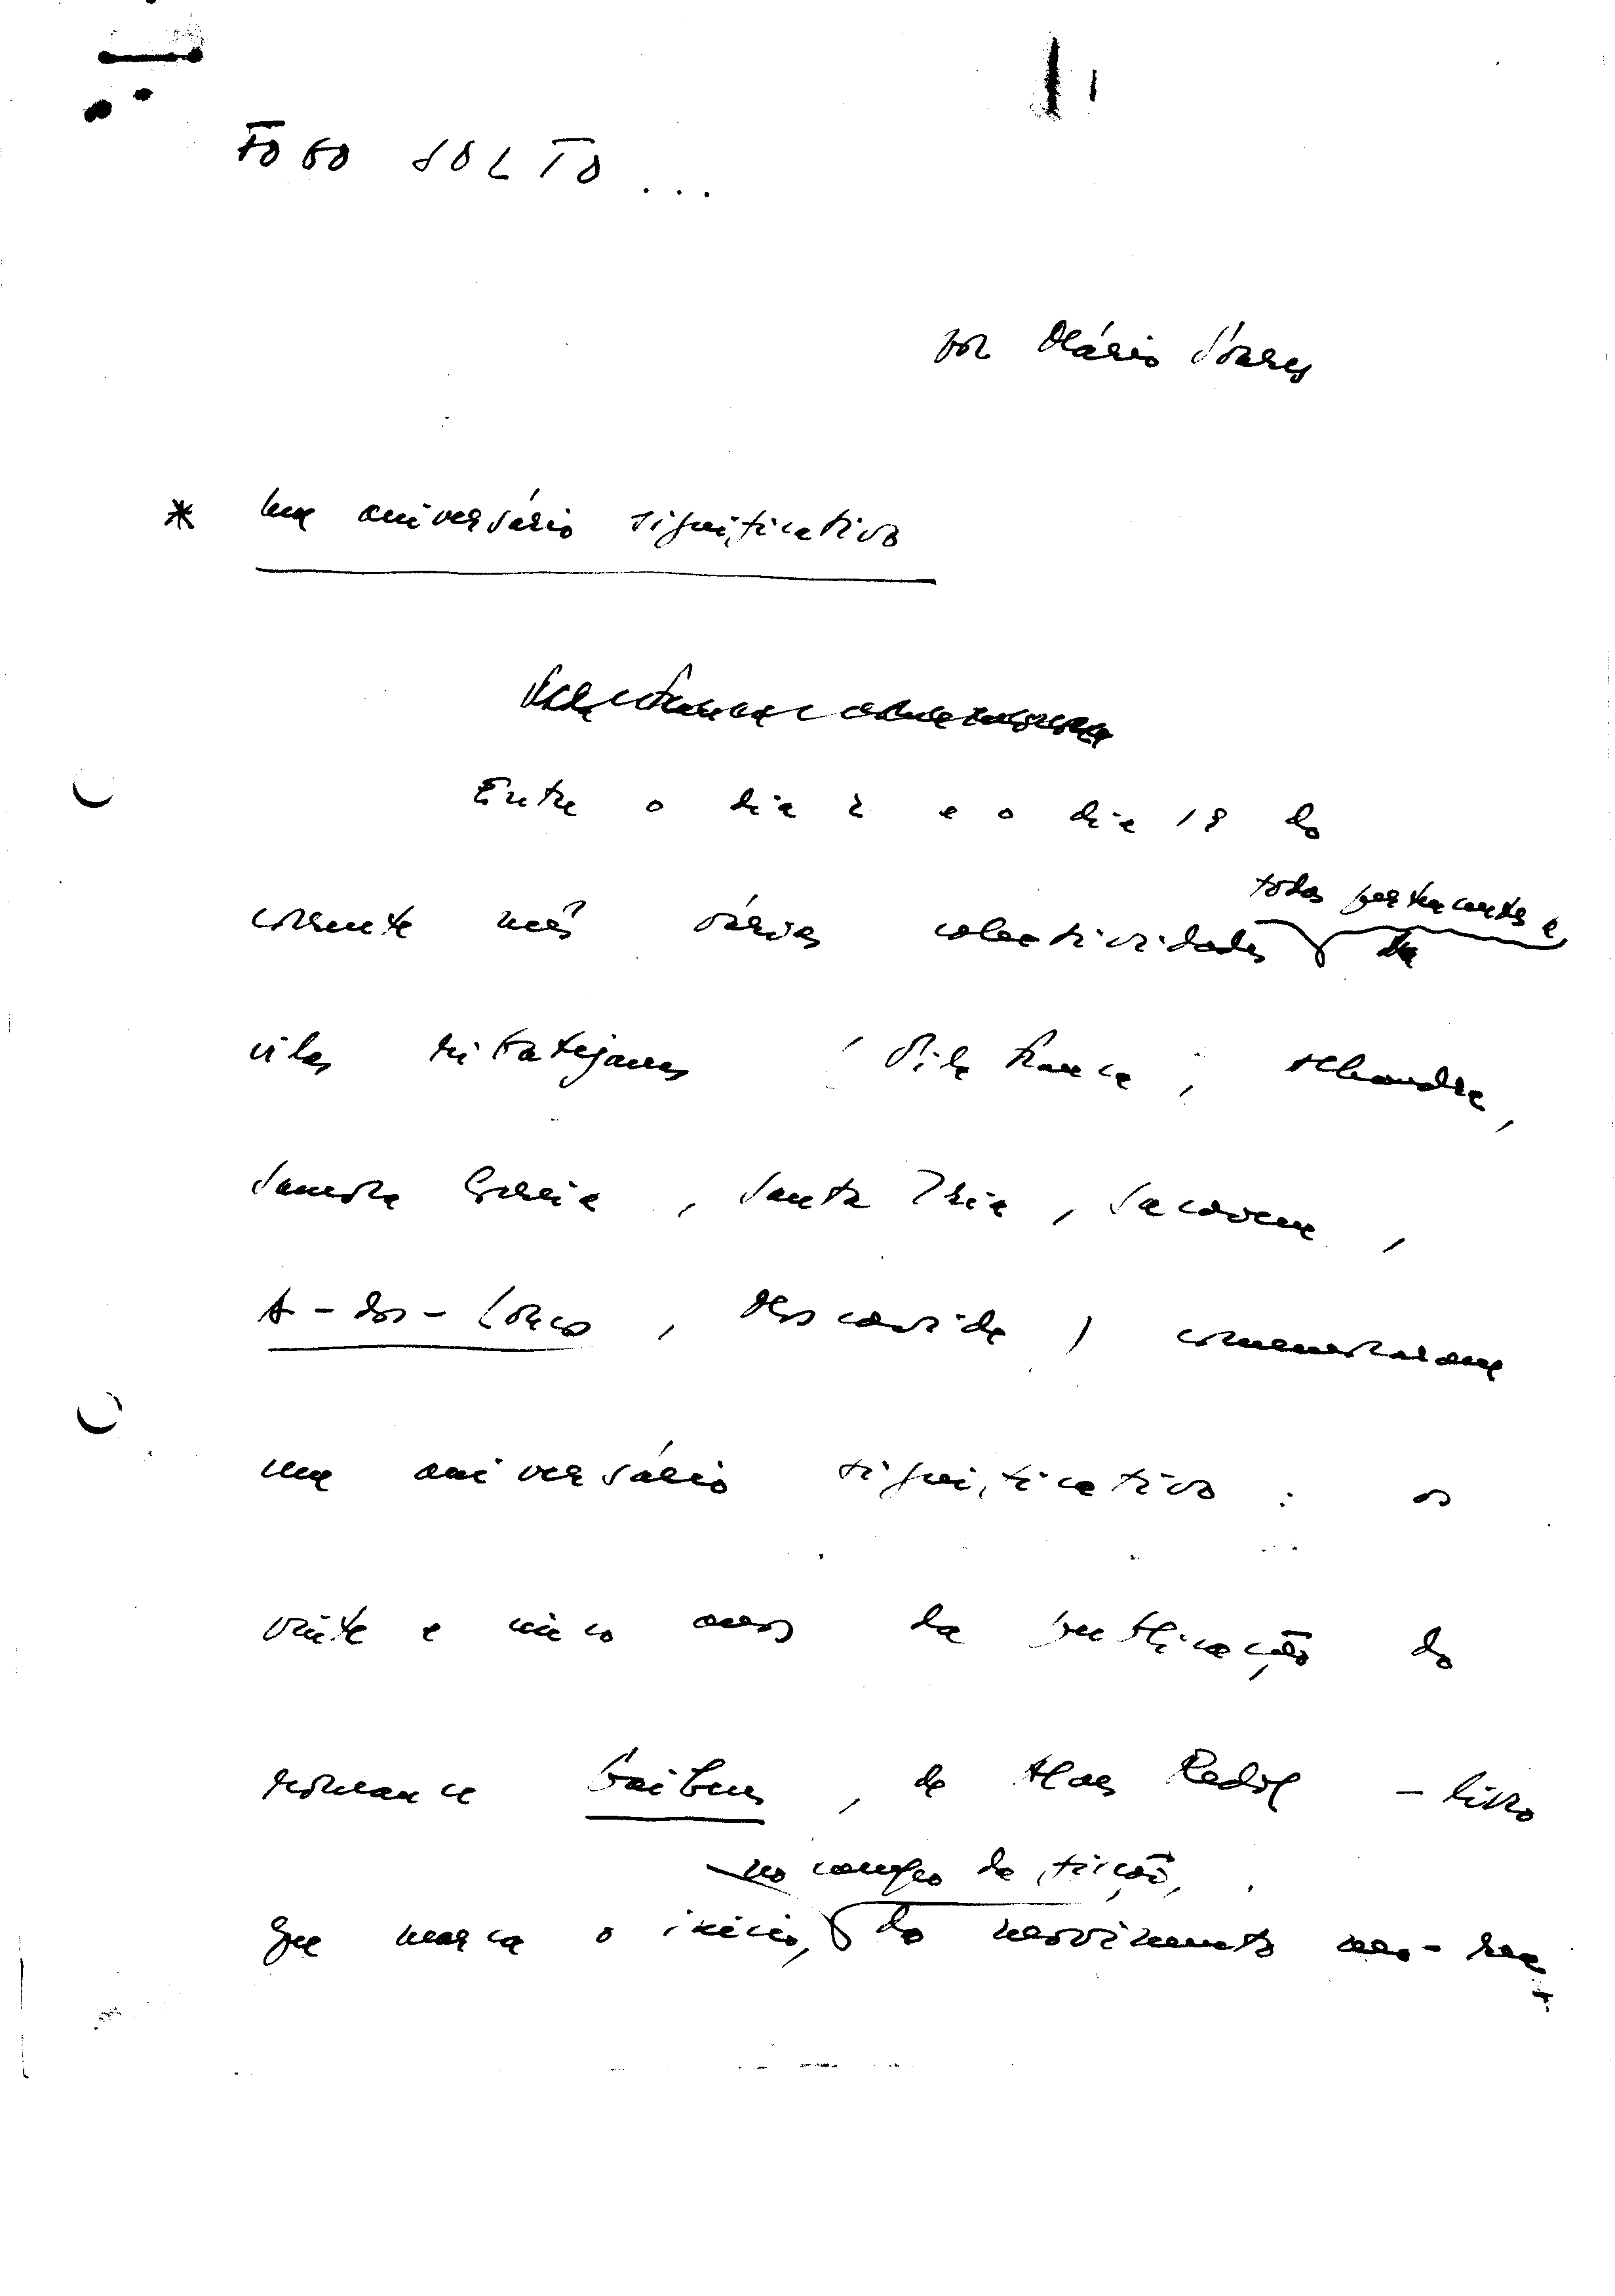 FOGO SOLTO...
por Mário Soares
* Um aniversário significativo
Entre o dia 2 e o dia 18 do
todas pertencentes a
corrente mês várias colectividades
vilas ribatejanas (Vila Franca, Alhandra,
Samora Correia, Santa Iria, Sacavem,
A-dos-Loucos, Moscavide) comemoraram
um aniversário significativo: os
vinte e cinco anos da publicação do
romance Gaibeus, de Alves Redol - livro
no campo da ficção,
que marca o início, do movimento neo-rea